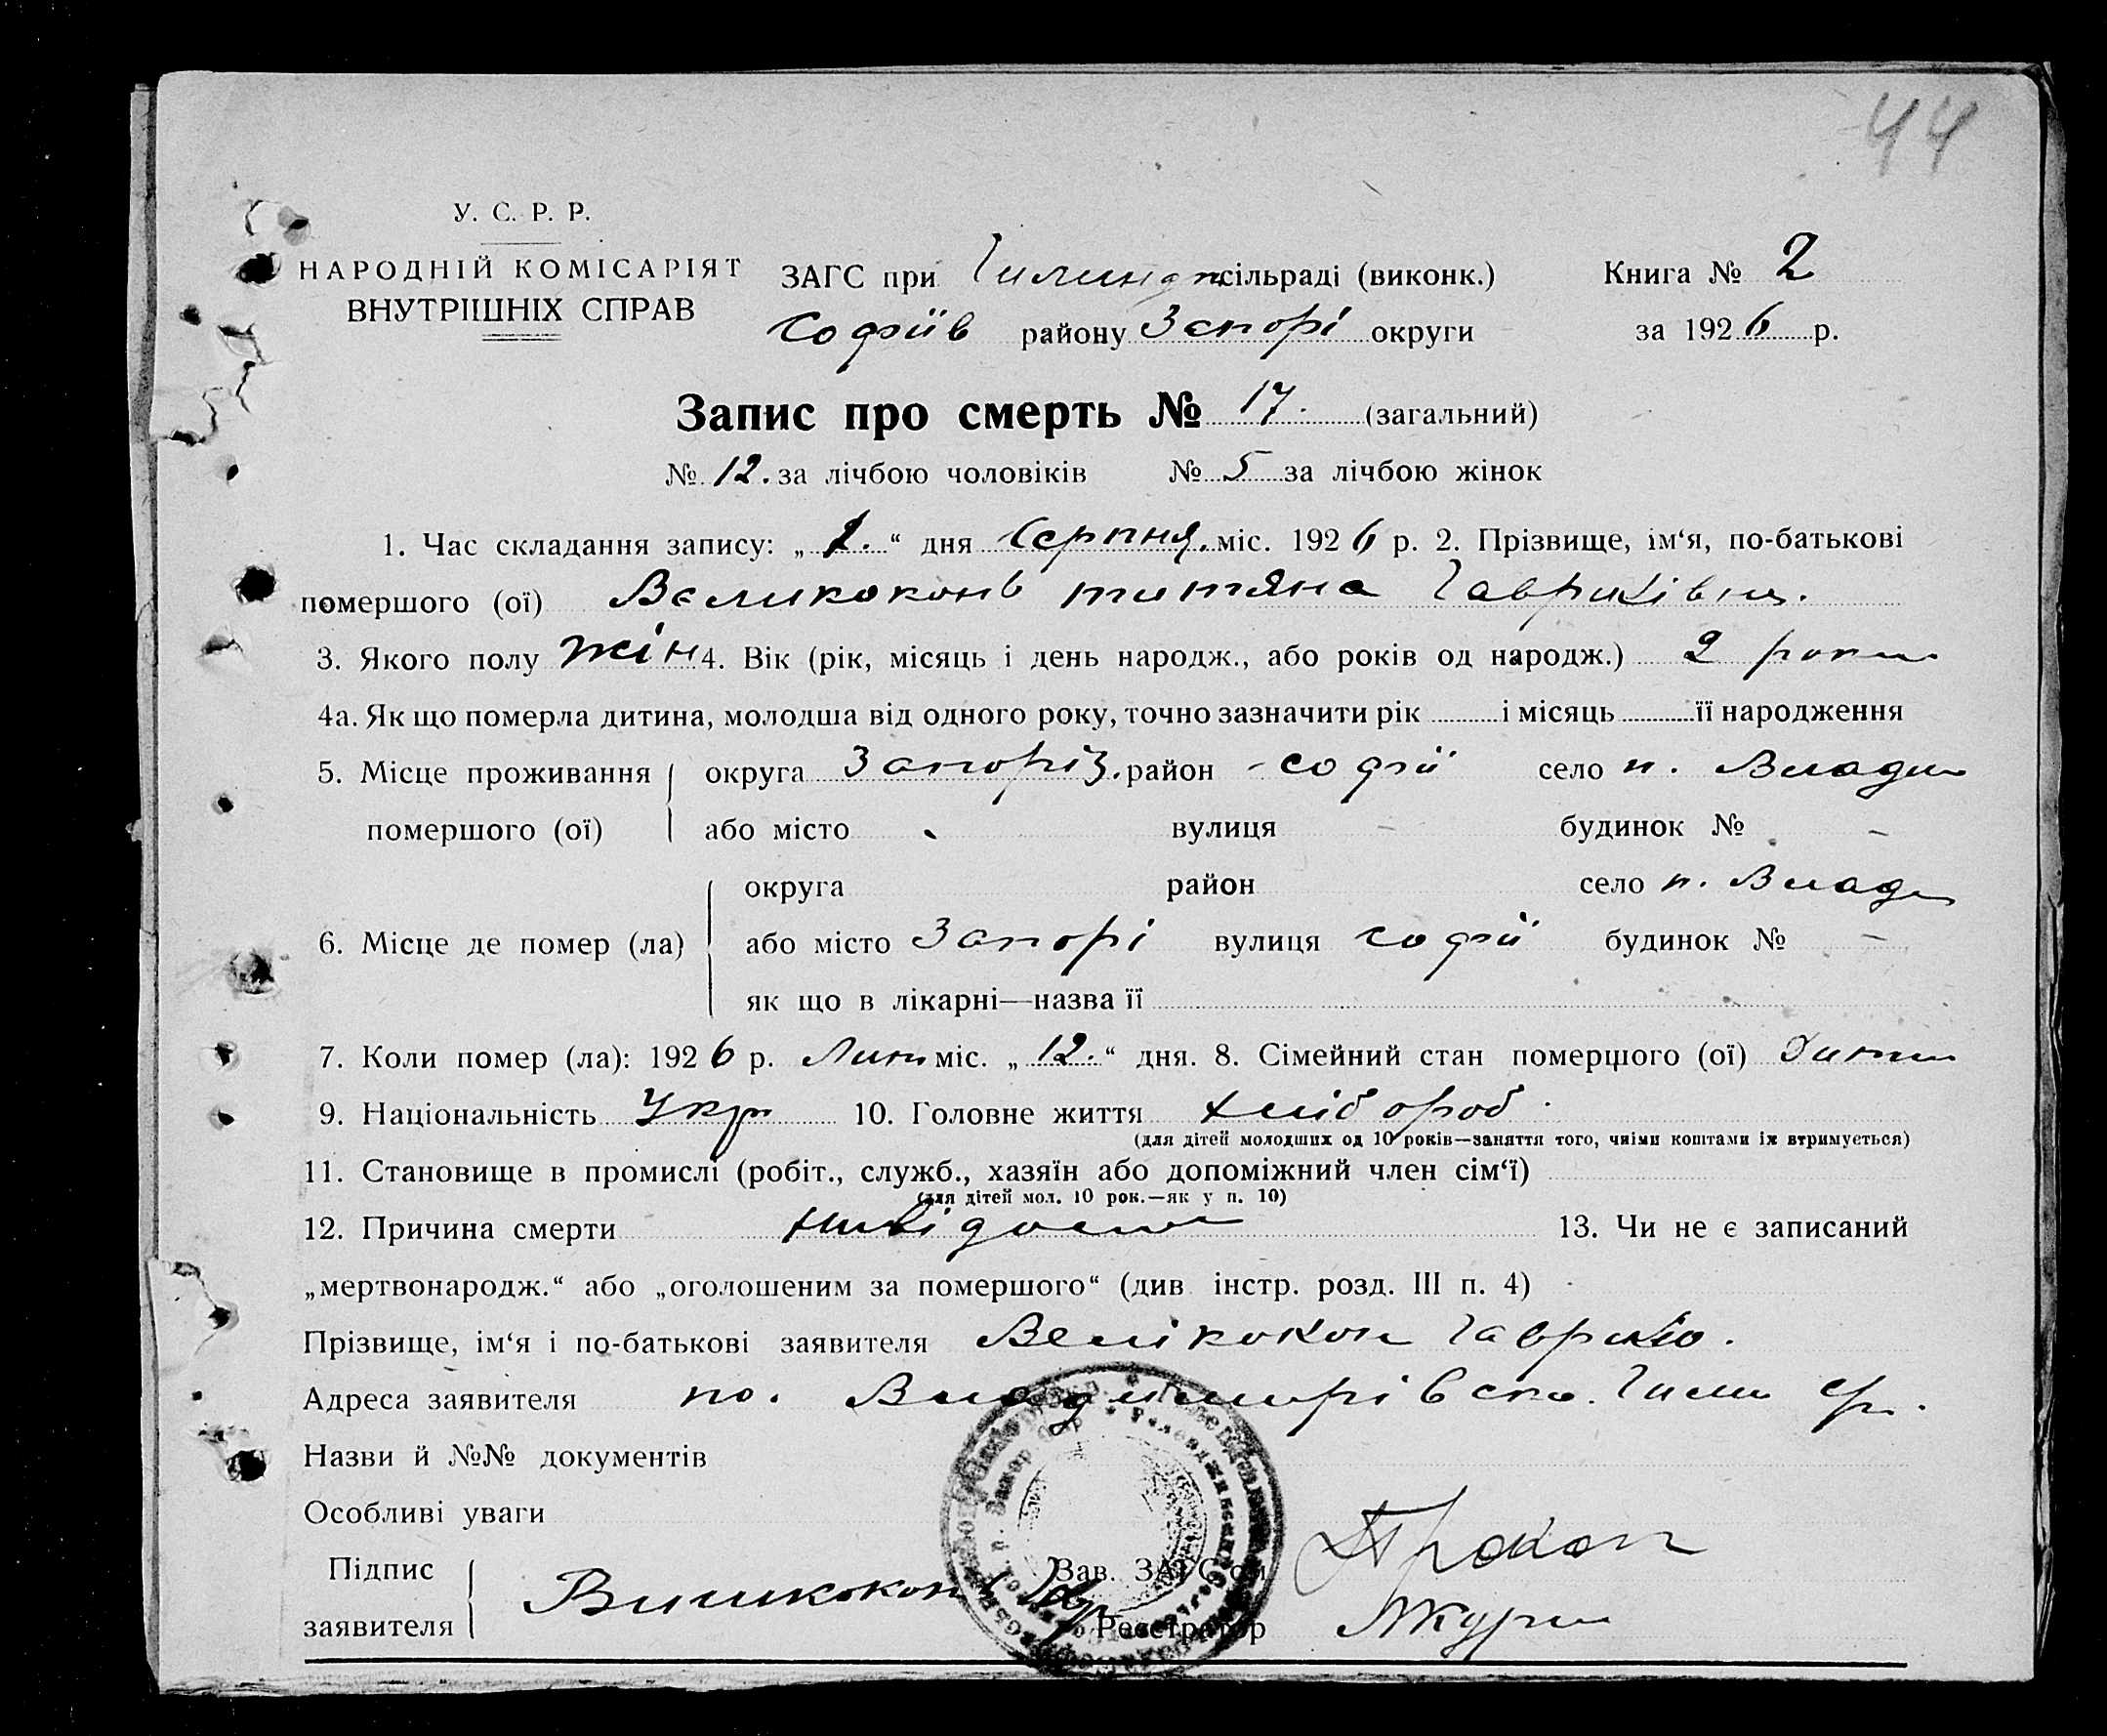 44
У. С. Р. Р.
НАРОДНІЙ КОМІСАРІЯТ
ВНУТРІШНІХ СПРАВ
ЗАГС при сільраді (виконк.)
Софіїв району Запорі округи
Книга № 2
за 1926 р.
Запис про смерть № 17. (загальний)
№ 12. за лічбою чоловіків № 5 за лічбою жінок
1. Час складання запису: „ “ дня Серпня. міс. 1926 р. 2. Прізвище, ім‘я, по-батькові
помершого (ої) Великоконь татяна Гаврилівна.
3. Якого полу жін 4. Вік (рік, місяць і день народж., або років од народж.) 2 роки
4а. Як що померла дитина, молодша від одного року, точно зазначити рік і місяць її народження
5. Місце проживання округа Запоріз. район - Софії село п. Влади
помершого (ої) або місто вулиця - будинок № -
округа район село п. Влад
6. Місце де помер (ла) або місто Запорі вулиця Софії будинок № -
як що в лікарні—назва її
7. Коли помер (ла): 1926 р. Лип міс. „ 12. “ дня. 8. Сімейний стан помершого (ої)
9. Національність Укр 10. Головне життя хліб ороб
(для дітей молодших од 10 років—заняття того, чиїми коштами їх втримується)
11. Становище в промислі (робіт., служб., хазяїн або допоміжний член сім‘ї)
(для дітей мол. 10 рок.—як у п. 10)
12. Причина смерти 13. Чи не є записаний
„мертвонародж.“ або „оголошеним за помершого“ (див. інстр. розд. III п. 4)
Прізвище, ім‘я і по-батькові заявителя Велікокон Гаврило.
Адреса заявителя по. Владимирівска.
Назви й №№ документів
Особливі уваги
Підпис
заявителя
Зав. ЗАГС‘ом
Реєстратор